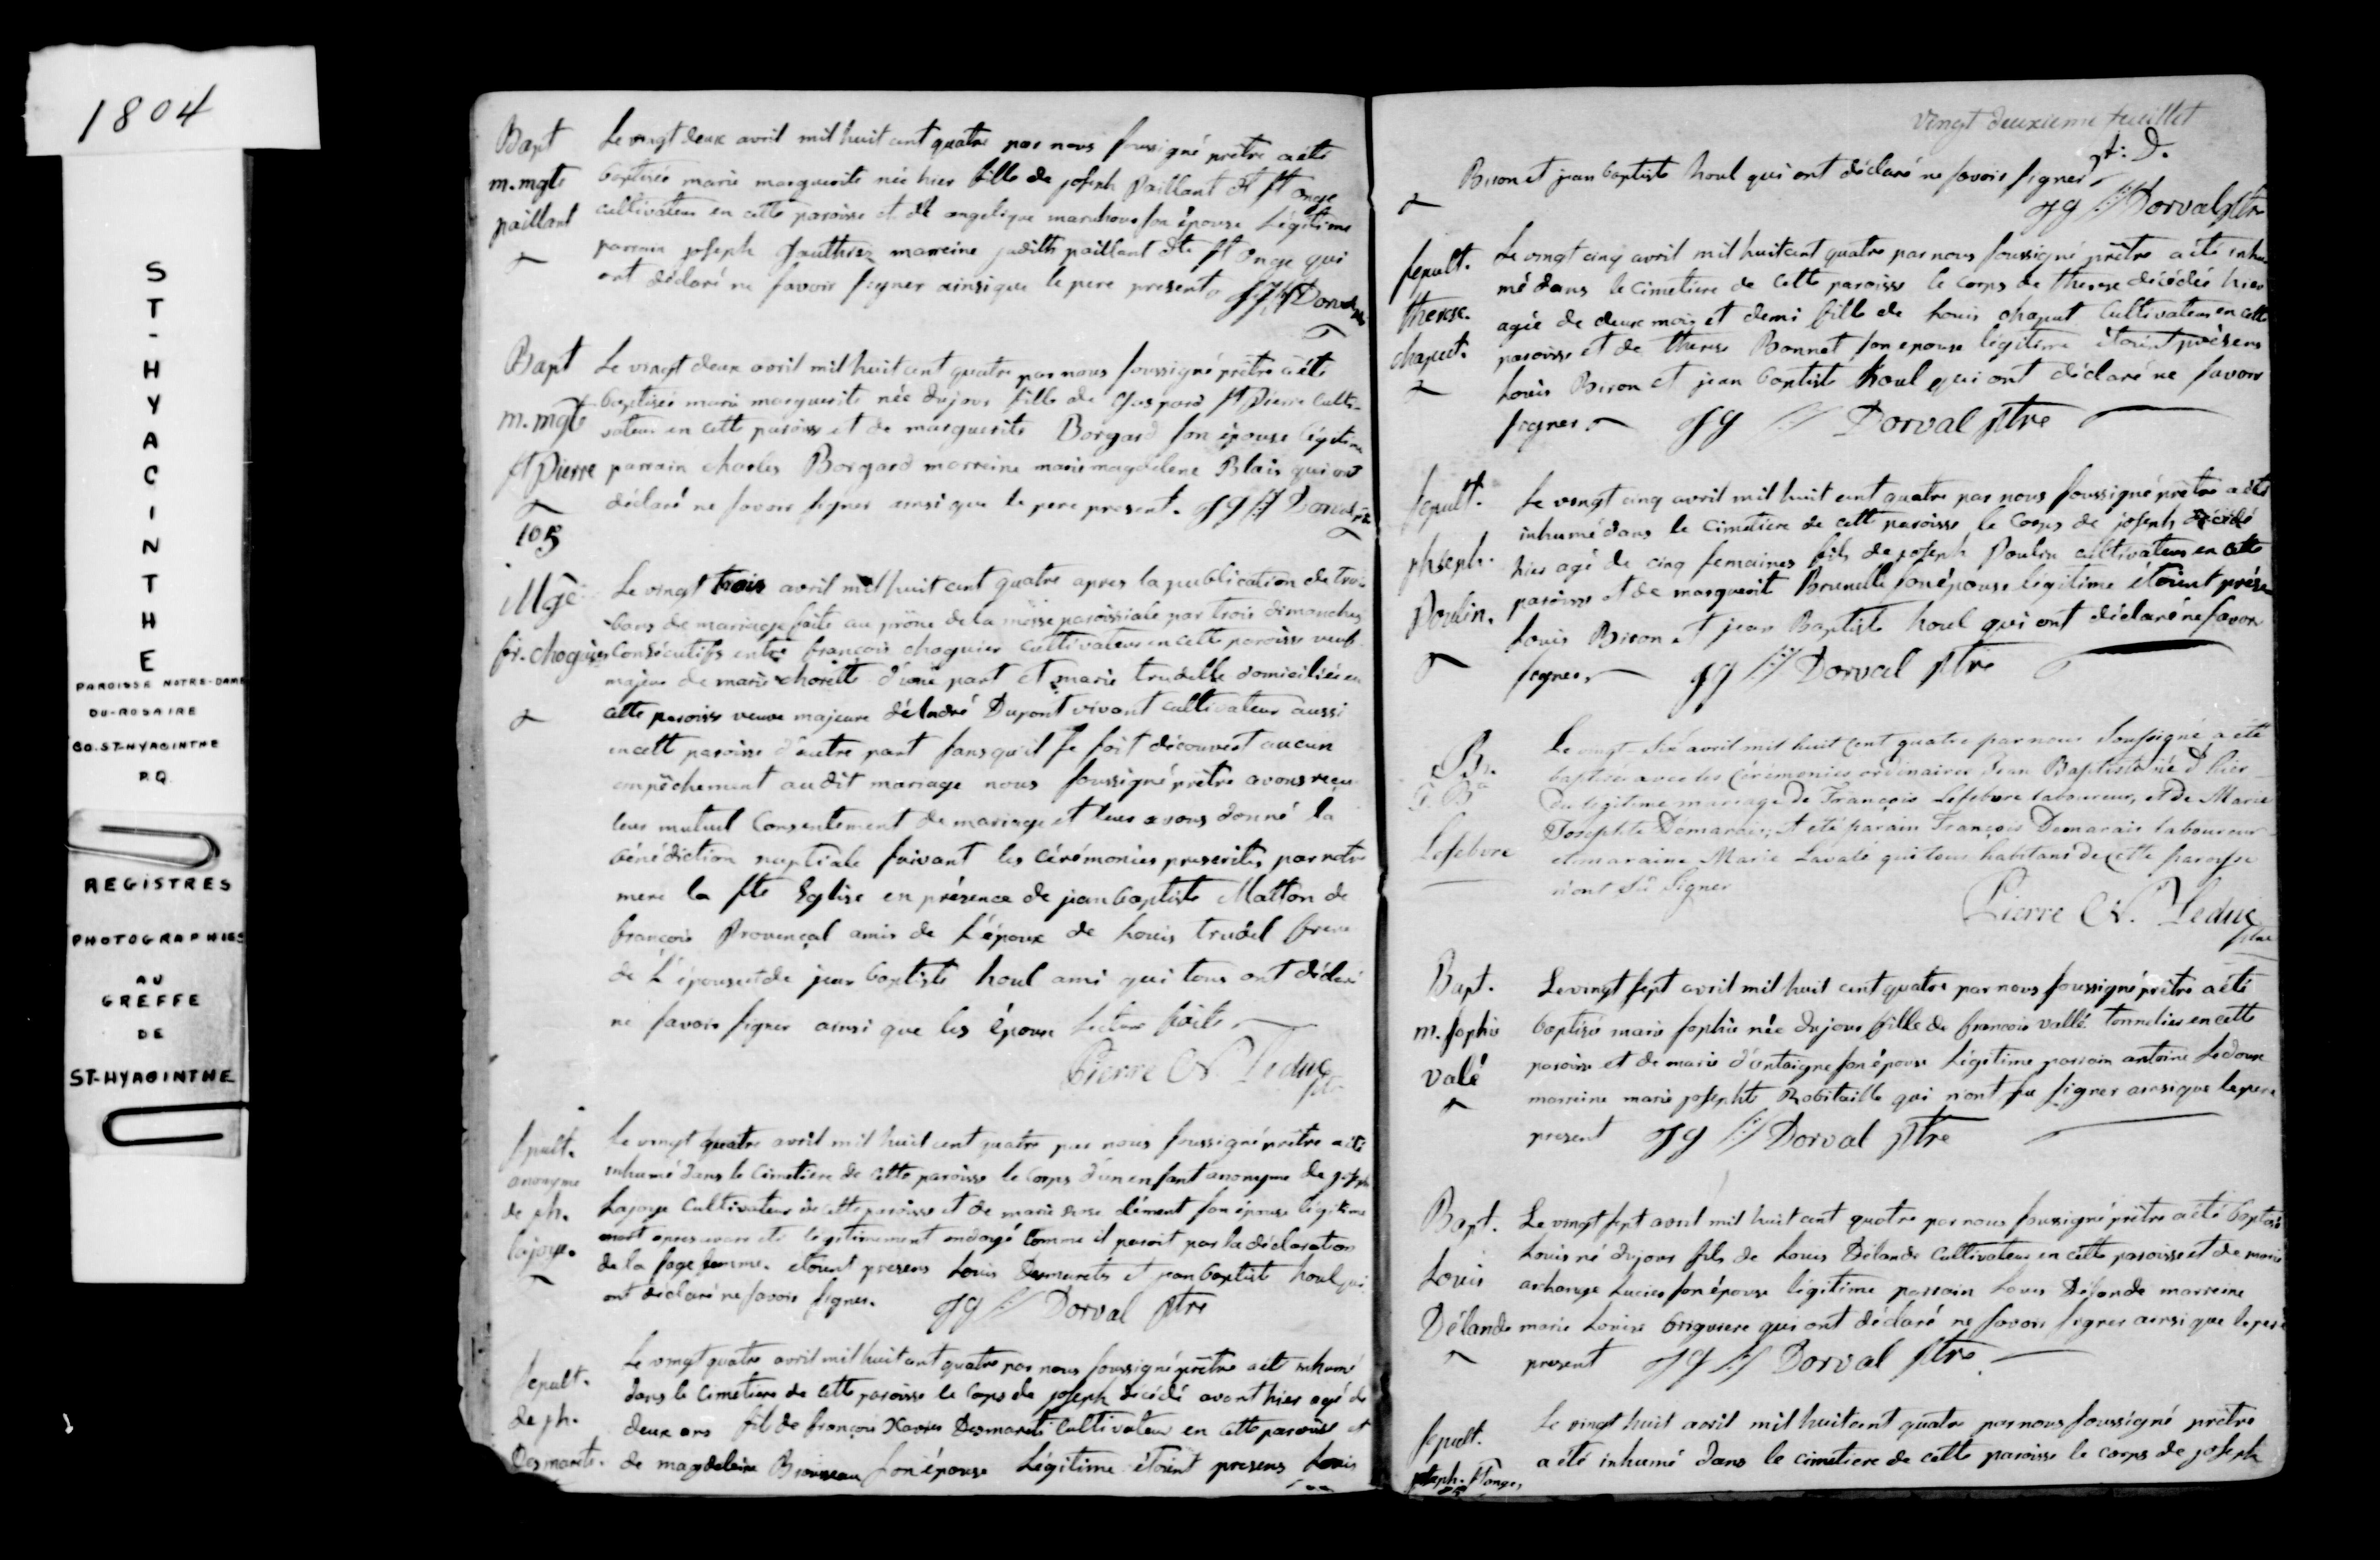 1804
ST-HYACINTHE
PAROISSE NOTRE-DAME
DU-ROSAIRE
CO. ST-HYACINTHE
P.Q.
REGISTRES
PHOTOGRAPHIES
AU
GREFFE
DE
ST-HYACINTHE
Bapt
m. mgte
paillant
Le vingt deux avril mil huit cent quatre par nous soussigné prêtre a été
baptisée marie marguerite née hier fille de joseph Paillant dt st onge
cultivateur en cette paroisse et de angelique son épouse légitime
parrain joseph Gauthier marreine judith paillant dte st onge qui
ont déclaré ne savoir signer ainsi que le pere present Dorval
Bapt
m. mgte
st Pierre
105
Le vingt deux avril mil huit cent quatre par nous soussigné prêtre a été
baptisée marie marguerite née du jour fille de Gaspard st Pierre culti-
vateur en cette paroisse et de marguerite Borgard son épouse légitime
parrain charles Borgard marreine marie magdelene Blais qui ont
déclaré ne savoir signer ainsi que le pere present. Dorval
Mge
fr. choquier
Le vingt trois avril mil huit cent quatre apres la publication de trois
bans de mariage faite au prône de la messe paroissiale par trois dimanches
Consécutifs entre françois choquier cultivateur en cette paroisse veuf
majeur de marie chorette d'une part et marie trudelle domiciliée en
cette paroisse veuve majeure d'André Dupont vivant cultivateur aussi
en cette paroisse d'autre part sans qu'il se soit découvert aucun
empêchement au dit mariage nous soussigné prêtre avons reçu
leur mutuel Consentement de mariage et leur avons donné la
bénédiction nuptiale suivant les cérémonies prescrites par notre
mere la ste Eglise en présence de jean baptiste Matton de
françois Provençal amis de L'époux de Louis trudel frere
de L'épouse et de jean baptiste houl ami qui tous ont déclaré
ne savoir signer ainsi que les époux Lecture faite
Pierre N. Leduc ptre
sepult.
anonyme
de jh.
lajoye.
Le vingt quatre avril mil huit cent quatre par nous soussigné prêtre a été
inhumé dans le Cimetiere de cette paroisse le Corps d'un enfant anonyme de joseph
Lajoye Cultivateur de cette paroisse et de marie rose clément son épouse légitime
mort apres avoir été légitimement ondoyé comme il paroit par la déclaration
de la sage femme. etoient presens Louis Desmarets et jean baptiste houl qui
ont déclaré ne savoir signer. Dorval ptre
sepult.
de jh.
Desmarets.
Le vingt quatre avril mil huit cent quatre par nous soussigné prêtre a été inhumé
dans le Cimetiere de cette paroisse le Corps de joseph décédé avant hier agé de
deux ans fils de françois Xavier Desmarets Cultivateur en cette paroisse et
de magdeleine Brousseau son épouse Légitime étoient presens Louis
Vingt deuxieme feuillet
Bison et jean baptiste houl qui ont déclaré ne savoir signer
Dorval ptre
sepult.
therese.
chaput.
Le vingt cinq avril mil huit cent quatre par nous soussigné prêtre a été inhu-
mé dans le Cimetiere de cette paroisse le Corps de therese décédée hier
agée de deux mois et demi fille de Louis chaput Cultivateur en cette
paroisse et de therese Bonnet son epouse légitime étoient présens
Louis Bison et jean baptiste houl qui ont déclaré ne savoir
signer. Dorval ptre
sepult.
Poulin.
Le vingt cinq avril mil huit cent quatre par nous soussigné prêtre a été
inhumé dans le Cimetiere de cette paroisse le Corps de joseph décédé
hier agé de cinq semaines fils de joseph Poulin cultivateur en cette
paroisse et de marguerit Brunelle son épouse légitime étoient
Louis Bison et jean Baptiste houl qui ont déclaré ne savoir
signer. Dorval ptre
B.
J. Bte
Lefebvre
Le vingt-six avril mil huit cent quatre par nous soussigné a été
baptisé avec les Cérémonies ordinaires Jean Baptiste né d'hier
du légitime mariage de François Lefebvre laboureur, et de Marie
Josephte Démarais; a été parain François Demarais laboureur
et maraine Marie Lavalé qui tous habitans de cette paroisse
n'ont sû signer
Pierre N. Leduc
ptre
Bapt.
m. sophie
valé
Le vingt sept avril mil huit cent quatre par nous soussigné prêtre a été
baptisée marie sophie née du jour fille de françois vallé tonnelier en cette
paroisse et de marie son épouse Légitime parrain antoine Ledoux
marreine marie josephte Robitaille qui n'ont su signer ainsi que le pere
present Dorval ptre
Bapt.
Louis
Délande
Le vingt sept avril mil huit cent quatre par nous soussigné prêtre a été baptisé
Louis né du jour fils de Louis Délande Cultivateur en cette paroisse et de marie
archange Lucier son épouse légitime parrain Louis Délande marreine
marie Louise briguiere qui ont déclaré ne savoir signer ainsi que le pere
present Dorval ptre
sepult.
Le vingt huit avril mil huit cent quatre par nous soussigné prêtre
a été inhumé dans le cimetiere de cette paroisse le corps de joseph